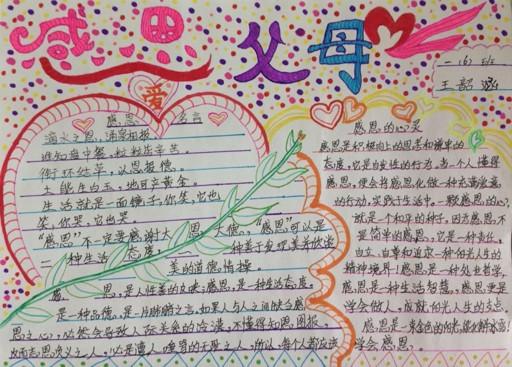 感恩父母
一(6)班
王韶涵
爱
感恩名言
滴水之恩,涌泉相报。
谁知盘中餐,粒粒皆辛苦。
衔环结草,以恩报德。
土能生白玉,地可出黄金。
生活就是一面镜子,你笑,它也
笑,你哭,它也哭。
“感恩”不一定要感谢大恩大德,“感恩”可以是
一种生活态度,一种善于发现美并欣赏
美的道德情操。
感恩,是人性善的反映;感恩,是一种生活态度,
是一种品德,是一片肺腑之言。如果人与人之间缺乏感
恩之心,必然会导致人际关系的冷淡,不懂得知恩图报,
反而忘恩负义之人,必是遭人唾骂的无耻之人。所以,每个人都应该学会感恩。
感恩的心灵
感恩是积极向上的思考和谦卑的
态度,它是自发性的行为。当一个人懂得
感恩,便会将感恩化做一种充满爱意
的行动,实践于生活中。一颗感恩的心,
就是一个和平的种子,因为感恩不
是简单的感恩,它是一种责任、
自立、自尊和追求一种阳光人生的
精神境界!感恩是一种处世哲学,
感恩是一种生活智慧,感恩更是
学会做人,成就阳光人生的支点。
感恩是一束金色的阳光,融化解冰寒!